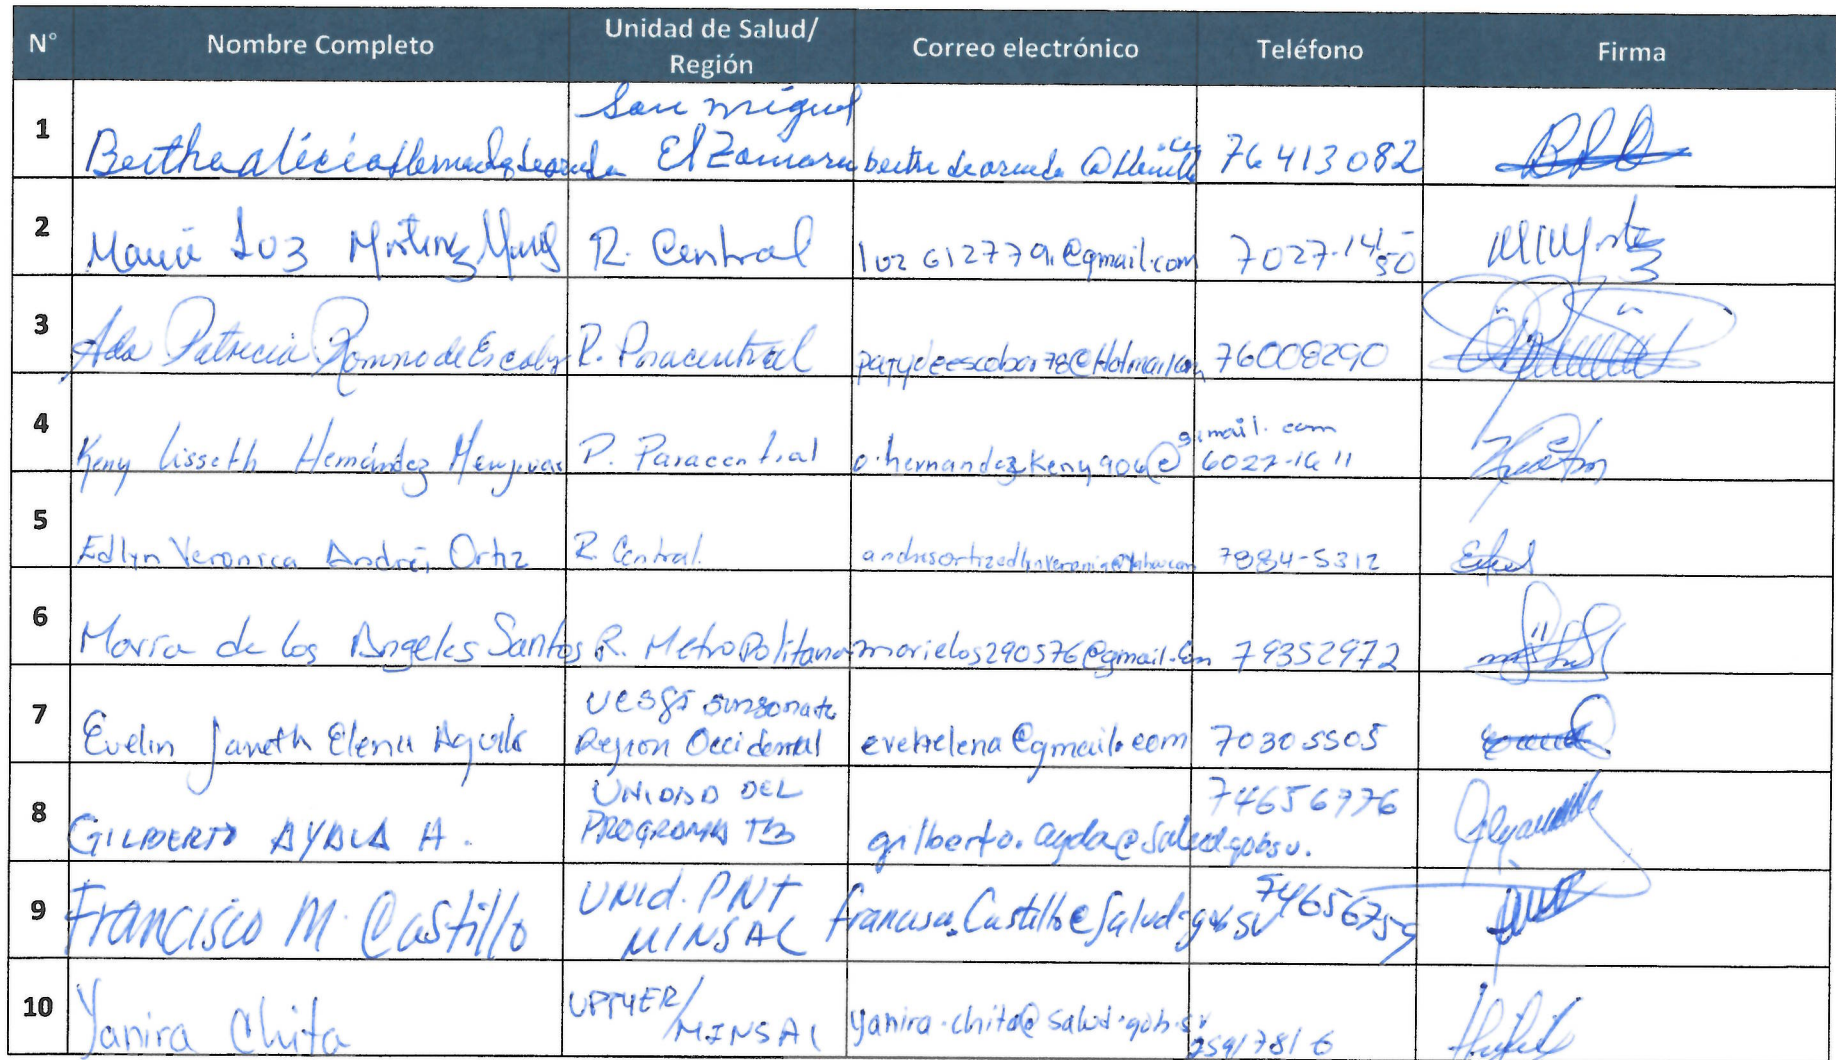 N° Nombre Completo Unidad de Salud/ Región Correo electrónico Teléfono Firma
1 Bertha alicia San miguel El 76413082
2 Maria Luz R. Central luz612779.@gmail.com 7027-1450
3 Ada Patricia Romero de Escobar R. Paracentral patydeescobar78@Hotmail.com 76008290
4 Keny Lisseth Hernández Menjivar P. Paracentral o.hernandezkeny906@gmail.com 6027-1611
5 Edlyn Veronica Andrés Ortiz R. Central. 7884-5312
6 Maria de los Angeles Santos R. Metropolitana marielos290576@gmail.com 79352972
7 Evelin Janeth Elena Aguila Sonsonate Region Occidental evehelena@gmail.com 70305505
8 GILBERTO AYALA A. UNIDAD DEL PROGRAMA TB gilberto.ayala@salud.gob.sv. 74656776
9 Francisco M. Castillo UNId. PNT MINSAL Francisco.Castillo@Salud.gob.sv 74656759
10 Yanira Chita UPTYER/MINSAL yanira.chita@salud.gob.sv 25917816